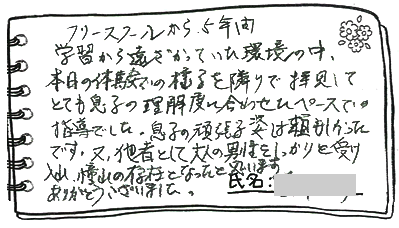 フリースクールから5年間
学習から遠ざかっていた環境の中、
本日の体験での様子を隣りで拝見して
とても息子の理解度に合わせたペースでの
指導でした。息子の頑張る姿は頼もしかった
です。又、他者として大人の男性をしっかりと受け
入れ、憧れの存在となったと思います
ありがとうございました。
氏名: